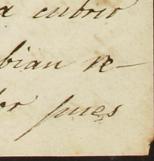 a cubrir
bian re-
pues